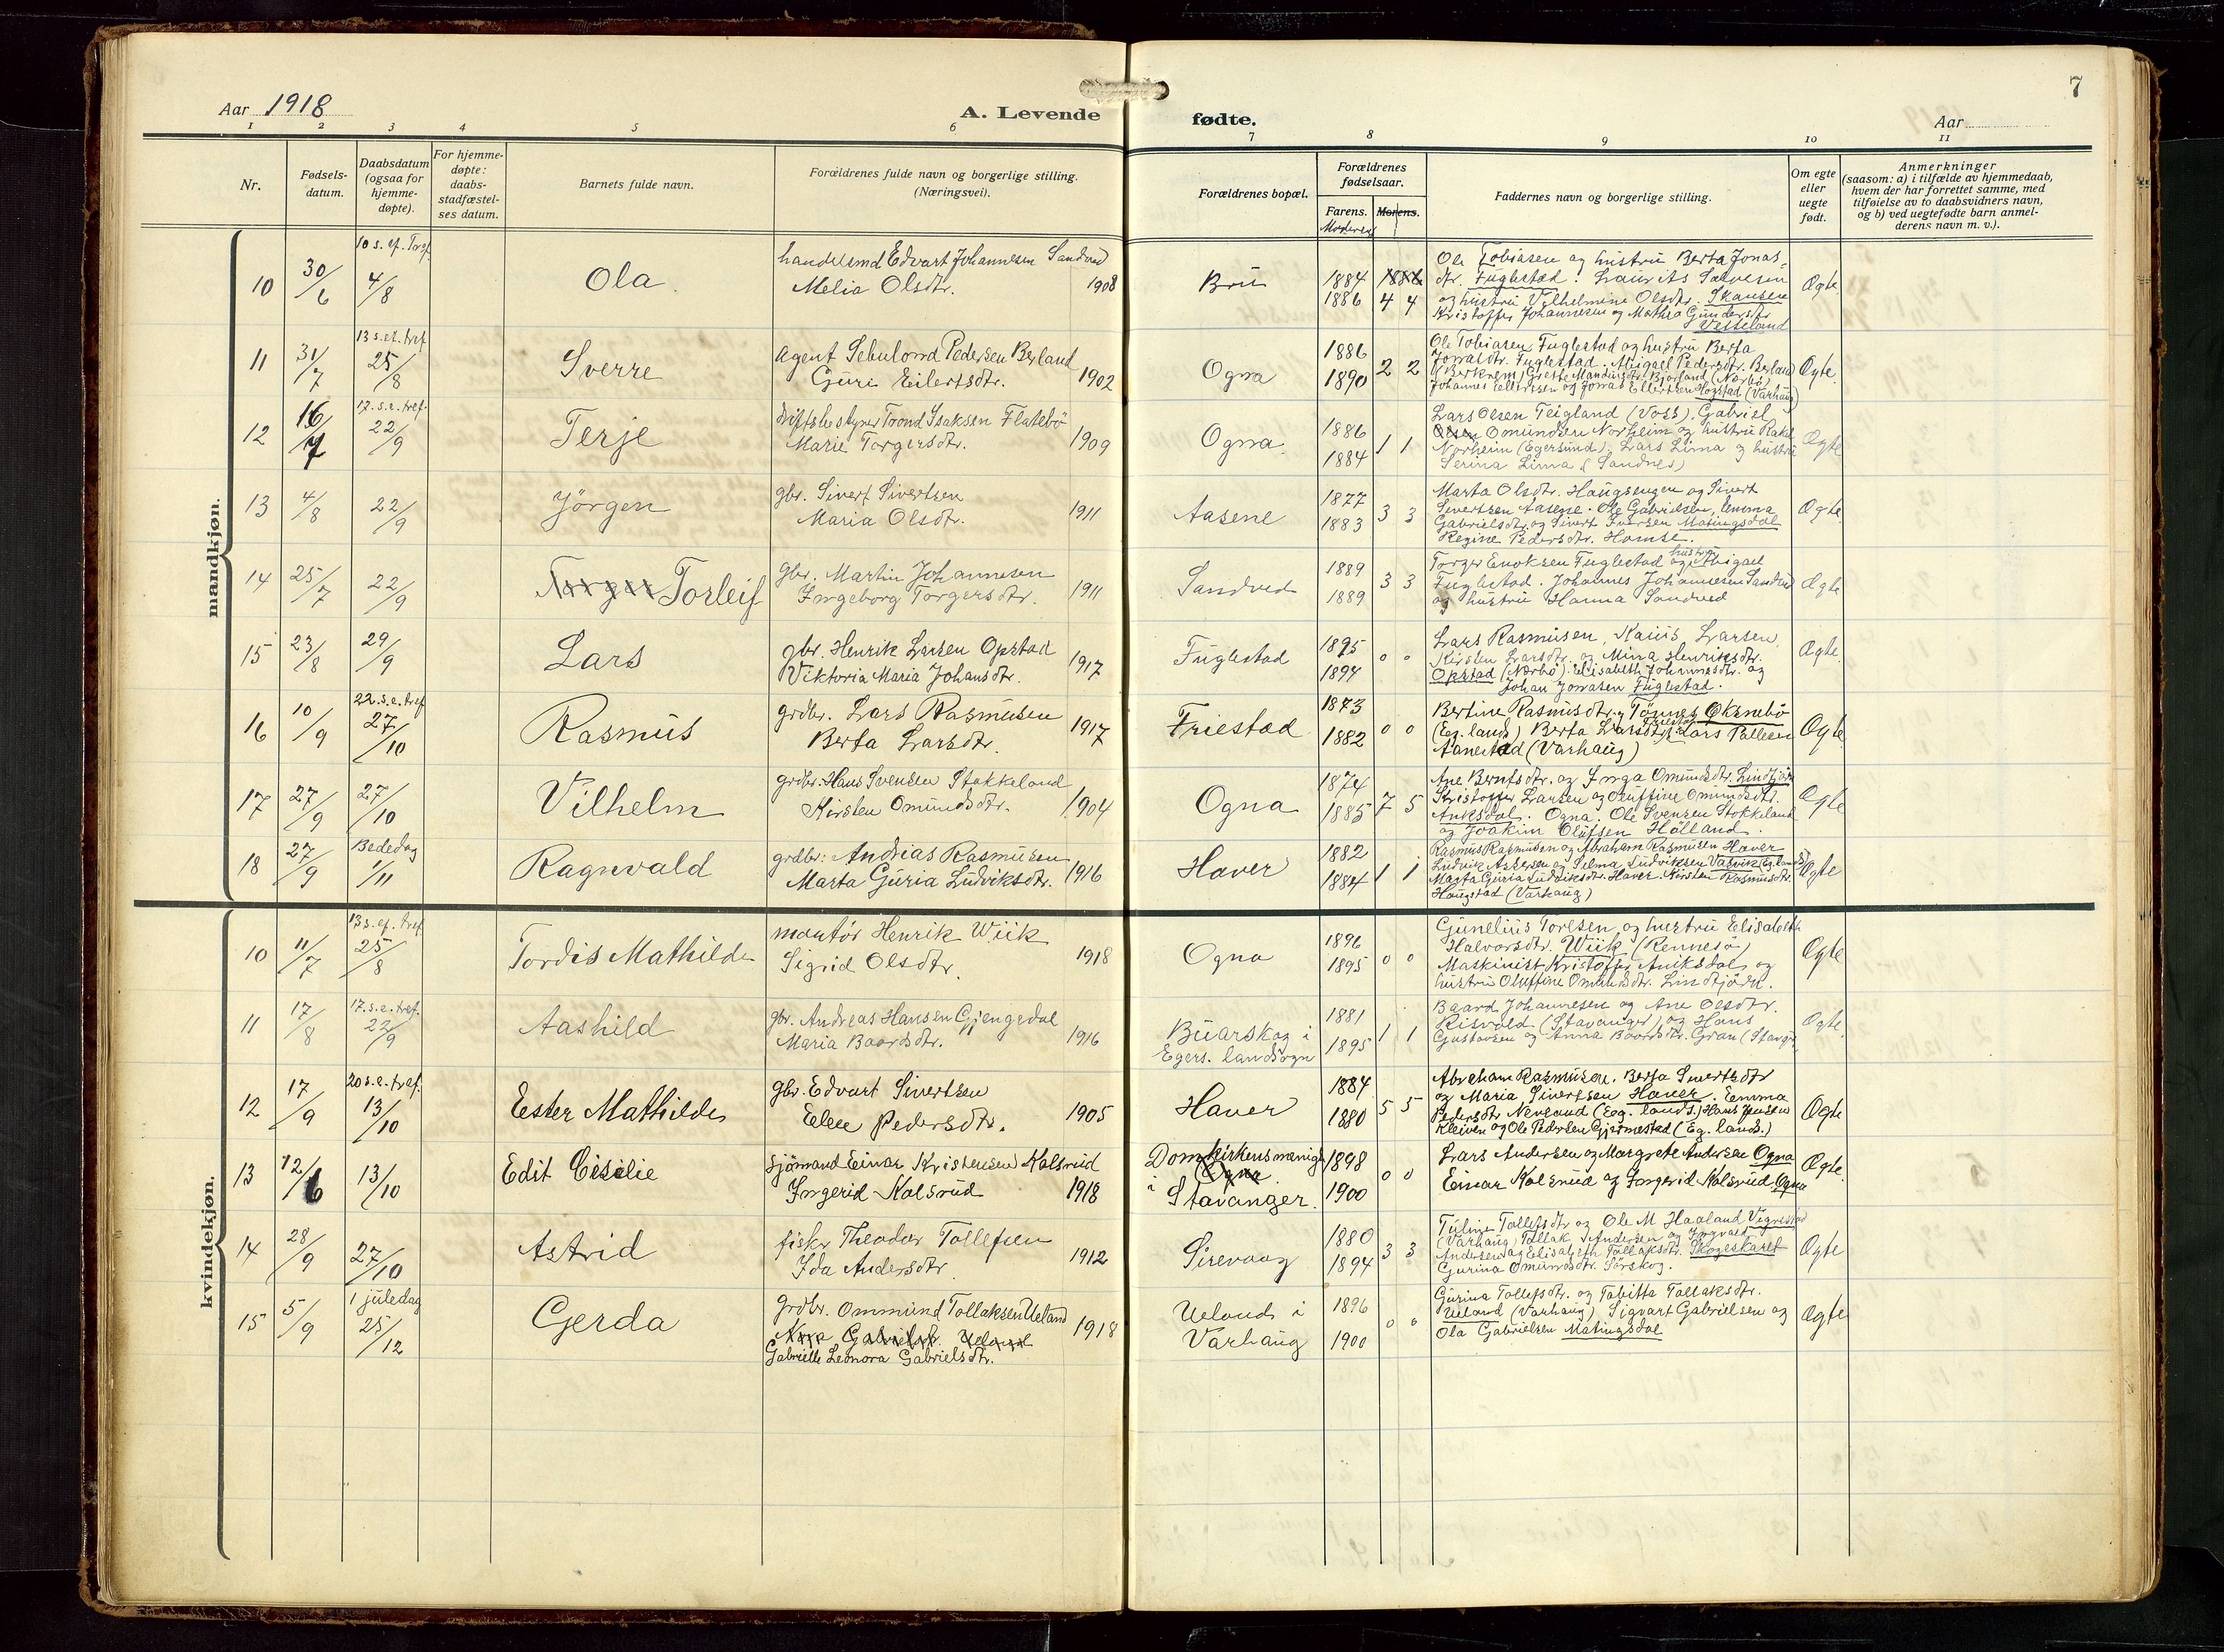 Aar 1918
A. Levende fødte.
Aar
7
1 2 3 4 5 6 7 8 9 10 11
Nr.
Fødsels-
datum.
Daabsdatum
(ogsaa for
hjemme-
døpte).
For hjemme-
døpte:
daabs-
stadfæstel-
ses datum.
Barnets fulde navn.
Forældrenes fulde navn og borgerlige stilling.
(Næringsvei).
Forældrenes bopæl.
Forældrenes
fødselsaar.
Farens. Morens.
Moderens
Faddernes navn og borgerlige stilling.
Om egte
eller
uegte
født.
Anmerkninger
(saasom: a) i tilfælde av hjemmedaab,
hvem der har forrettet samme, med
tilføielse av to daabsvidners navn,
og b) ved uegtefødte barn anmel-
derens navn m. v.).
mandkjøn.
10 30/6 10 s. ef. Tref. 4/8 Ola.
handelsmd Edvart Johannesen Sandved
Melia Olsdtr. 1908
Bru 1884 1886 1886 4 4
Ole Tobiasen og hustru Berta Jonas-
dtr. Fuglestad. Laurits Salvesen
og hustru Vilhelmine Olsdtr. Skansen
Kristoffer Johannesen og Mathea Gundersdtr
Vetteland
Ægte.
11 31/7 13 s. ef. tref. 25/8 Sverre
Agent Sebulond Pedersen Berland
Guri Eilertsdtr. 1902
Ogna 1886 1890 2 2
Ole Tobiasen Fuglestad og hustru Berta
Jonasdtr. Fuglestad. Abigael Pedersdtr. Berland
(Berkrem) Grette Mandiusdtr. Bjorland (Nærbø)
Johannes Ellertsen og Jonas Ellertsen Hogstad (Varhaug)
Ægte.
12 16/7 17. s. e. tref. 22/9 Terje
driftsbestyrer Trond Isaksen Flatebø
Marie Torgersdtr. 1909
Ogna 1886 1884 1 1
Lars Olsen Teigland (Voss). Gabriel
Olsen Omundsen Norheim og hustru Rakel
Norheim (Egersund). Lars Lima og hustru
Serina Lima (Sandnes)
Ægte
13 4/8 22/9 Jørgen
gbr. Sivert Sivertsen
Maria Olsdtr. 1911
Aasene 1877 1883 3 3
Marta Olsdtr. Haugsengen og Sivert
Sivertsen Aasene. Ole Gabrielsen, Emma
Gabrielsdtr. og Sivert Iversen Matingsdal
Regine Pedersdtr. Homse.
Ægte.
14 25/7 22/9 Torger Torleif
Gbr. Martin Johannesen
Ingeborg Torgersdtr. 1911
Sandved 1889 1889 3 3
Torger Enoksen Fuglestad og hustru Abigael
Fuglestad. Johannes Johannesen Sandved
og hustru Hanna Sandved
Ægte
15 23/8 29/9 Lars
gbr. Henrik Larsen Opstad
Viktoria Maria Johansdtr. 1917
Fuglestad 1895 1894 0 0
Lars Rasmusen, Kaius Larsen,
Kirsten Larsdtr. og Mina Henriksdtr.
Opstad (Nærbø). Elisabeth Johannesdtr. og
Johan Jonasen Fuglestad.
Ægte.
16 10/9 22. s. e. tref 27/10 Rasmus
grdbr. Lars Rasmusen
Berta Larsdtr. 1917
Friestad 1873 1882 0 0
Bertine Rasmusdtr. og Tønnes Øksnebø
(Eg. lands) Berta Larsdtr. Friestad, Lars Pallesen
Aanestad (Varhaug)
Ægte
17 27/9 27/10 Vilhelm
grdbr. Hans Svensen Stokkeland
Kirsten Omundsdtr. 1904
Ogna 1874 1885 7 5
Ane Berntsdtr. og Inga Omundsdtr. Lindtjørn
Kristoffer Larsen og Oluffine Omundsdtr.
Auksdal. Ogna. Ole Svensen Stokkeland
og Joakim Olufsen Hølland.
Ægte
18 27/9 Bededag 1/11 Ragnvald
grdbr: Andreas Rasmusen
Marta Guria Ludviksdtr. 1916
Haver 1882 1884 1 1
Rasmus Rasmusen og Abraham Rasmusen Haver
Ludvik Assersen og Selma Ludviksen Vatsvik (Eg. lands)
Marta Guria Ludviksdtr. Haver. Kirsten Rasmusdtr.
Haugstad (Varhaug)
Ægte
kvindekjøn.
10 11/7 13 s. ef. tref. 25/8 Tordis Mathilde
montør Henrik Wiik
Sigrid Olsdtr. 1918
Ogna 1896 1895 0 0
Gunelius Toresen og hustru Elisabeth
Halvorsdtr. Wiik (Rennesø)
Maskinist Kristoffer Auiksdal og
hustru Oluffine Omundsdtr. Lindtjørn.
Ægte
11 17/8 17. s. e. tref. 22/9 Aashild
gbr. Andreas Hansen Gjengedal
Maria Baardsdtr. 1916
Buarskog i
Egers. landsogn 1881 1895 1 1
Baard Johannesen og Ane Olsdtr.
Risvold (Stavanger) og Hans
Gustavsen og Anna Baardsdtr. Gran (Stavgr.
Ægte
12 17/9 20 s. e. tref. 13/10 Ester Mathilde
gbr. Edvart Sivertsen
Elen Pedersdtr. 1905
Haver 1884 1880 5 5
Abraham Rasmusen. Berta Sivertsdtr
og Maria Sivertsen Haver. Emma
Pedersdtr Nevland (Eg. lands.) Hans Jensen
Kleiven og Ole Pedersen Gjermestad (Eg. lands.)
Ægte
13 12/6 13/10 Edit Cisilie
sjømand Einar Kristensen Kolsrud
Ingerid Kolsrud 1918
Domkirkens menigh.
Ogna
i Stavanger. 1898 1900 0 0
Lars Andersen og Margrete Andersen Ogna
Einar Kolsrud og Ingerid Kolsrud Ogna
Ægte.
14 28/9 27/10 Astrid
fisker Theodor Tollefsen
Ida Andersdtr 1912
Sirevaag 1880 1894 3 3
Tuline Tollefsdtr og Ole M Haaland Vigrestad
(Varhaug) Tollak Andersen og Ingvald
Andersen og Elisabeth Tollaksdtr. Skogeskaret
Gurina Omundsdtr. Sørskog.
Ægte
15 5/9 1 juledag 25/12 Gerda
Grdbr. Ommund Tollaksen Ueland
Nora Gabrielsdtr. Ueland
Gabrielle Leonora Gabrielsdtr. 1918
Ueland i
Varhaug 1896 1900 0 0
Gurina Tollefsdtr. og Tabitta Tollaksdtr.
Ueland (Varhaug) Sigvart Gabrielsen og
Ola Gabrielsen Matingsdal
Ægte